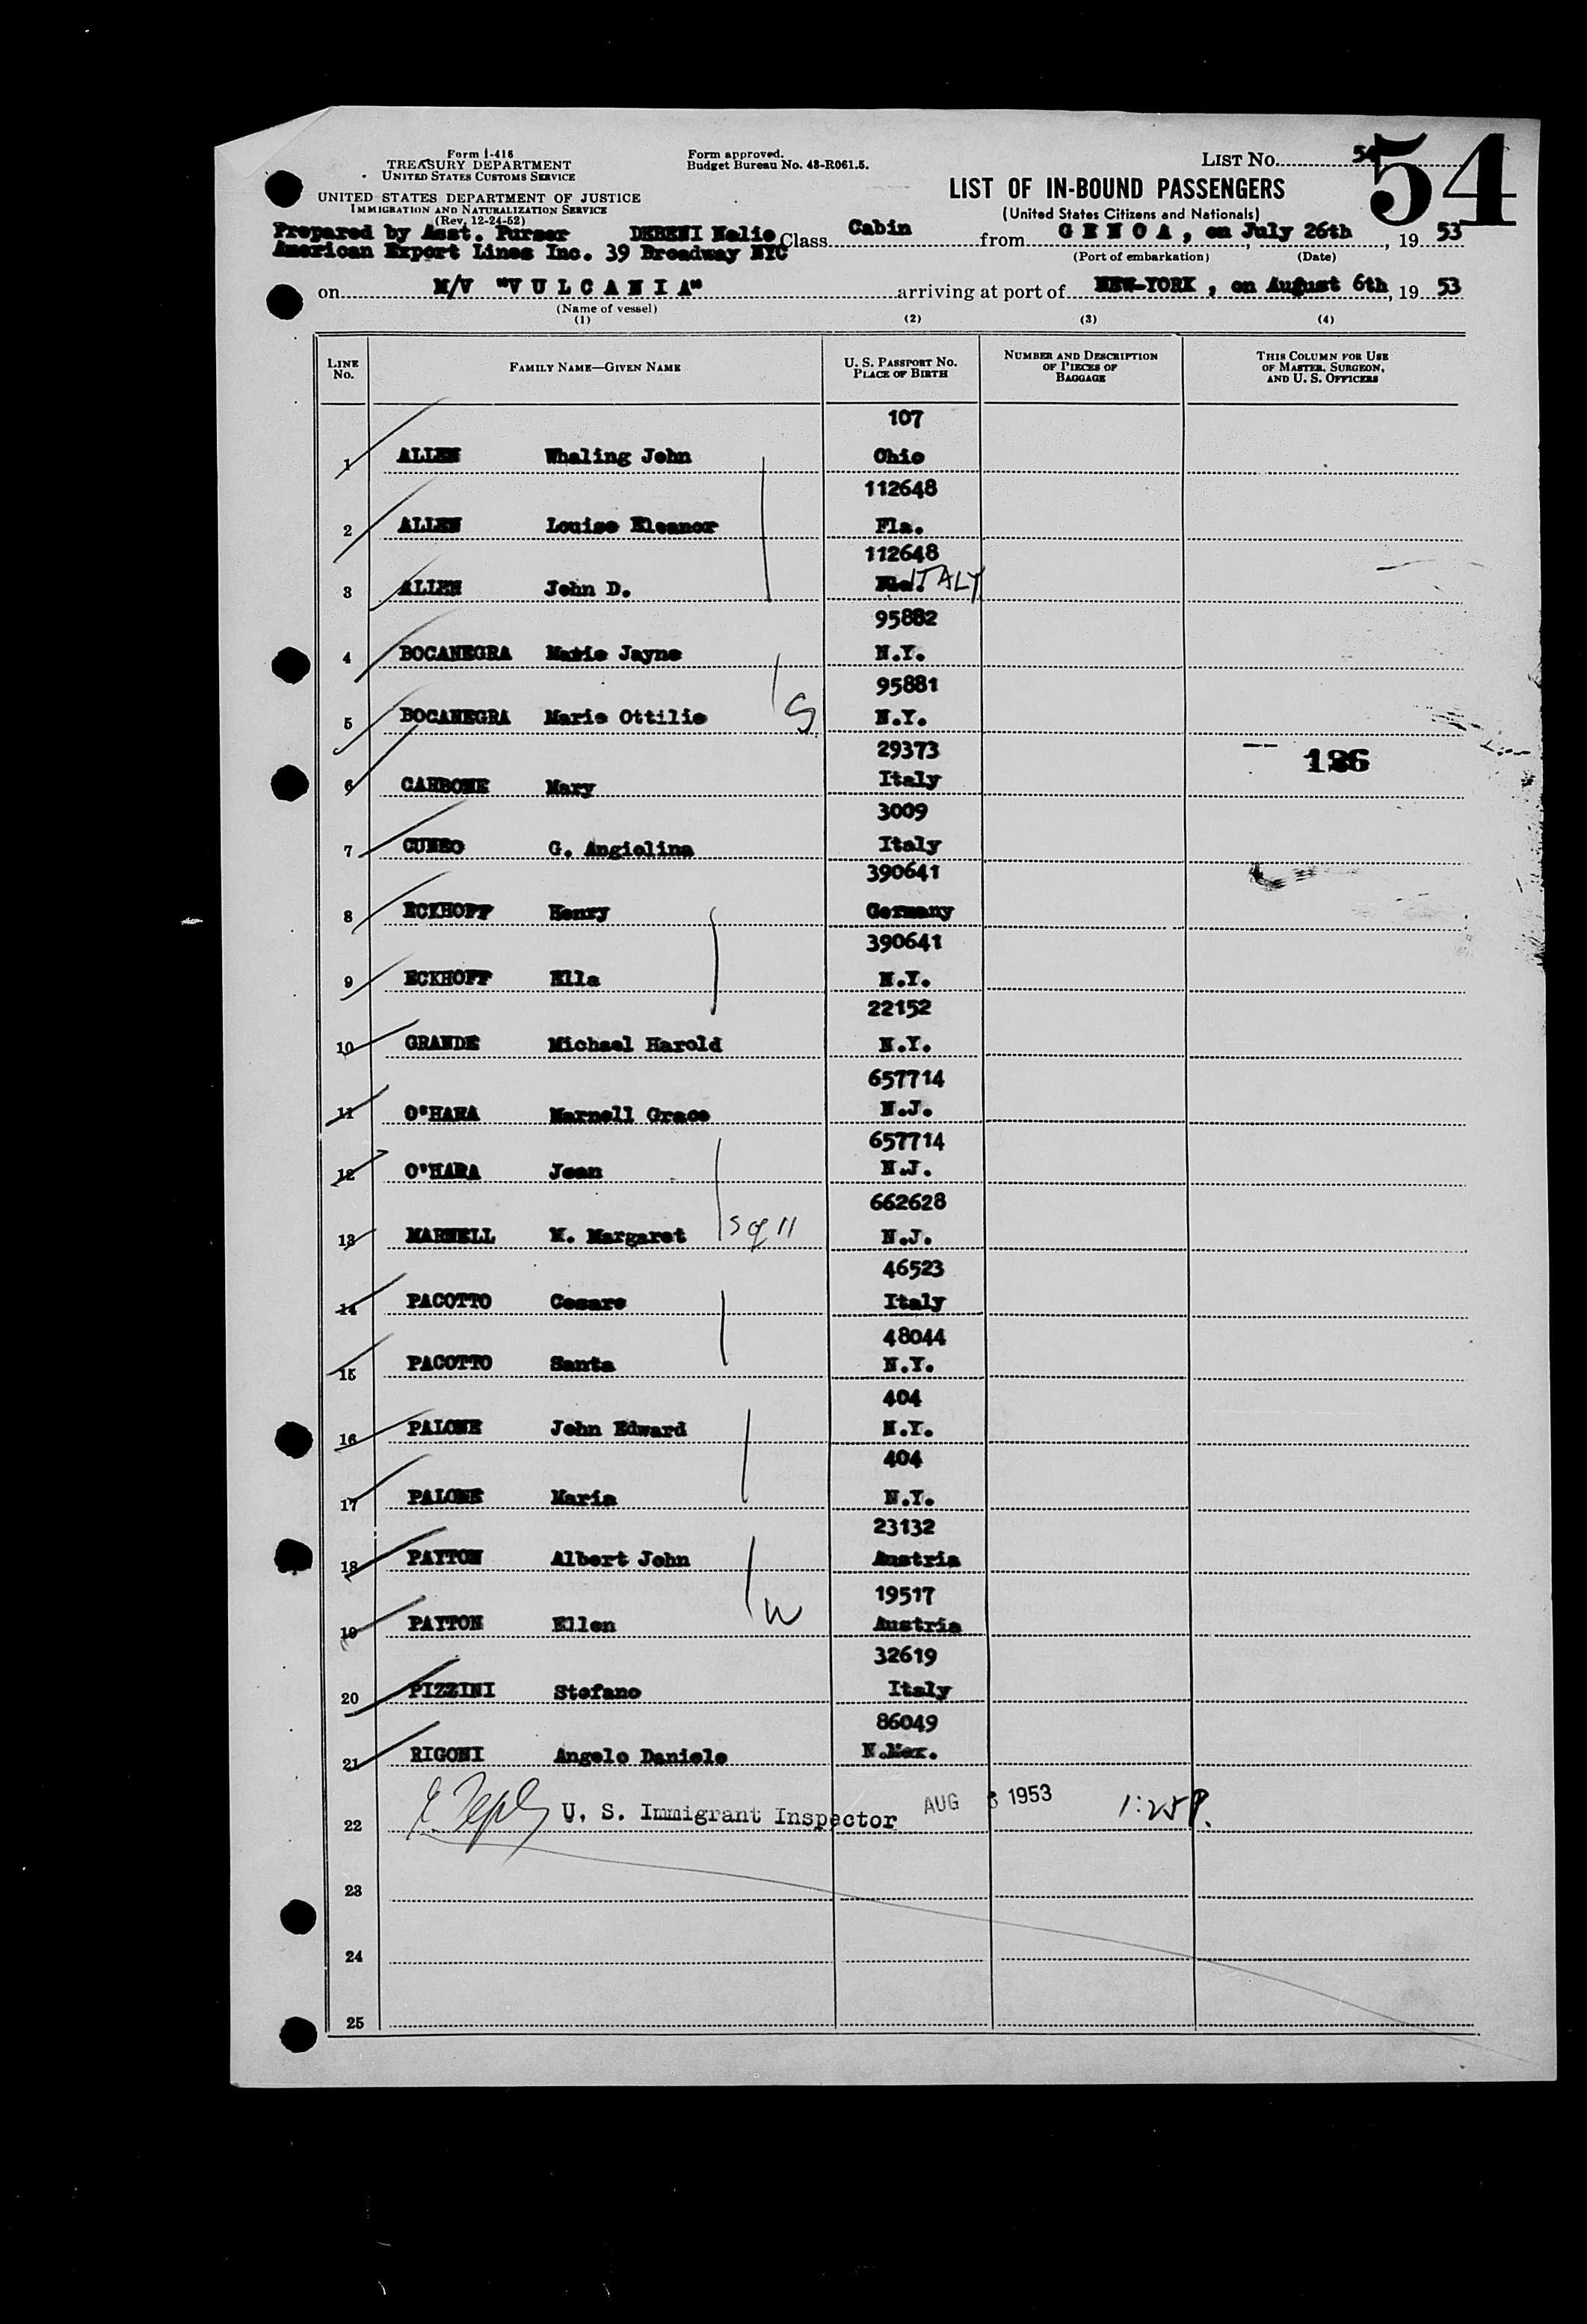 Form I-416
TREASURY DEPARTMENT
UNITED STATES CUSTOMS SERVICE
UNITED STATES DEPARTMENT OF JUSTICE
IMMIGRATION AND NATURALIZATION SERVICE
(Rev. 12-24-52)
Form approved.
Budget Bureau No. 43-R061.5.
LIST NO. 54
54
LIST OF IN-BOUND PASSENGERS
(United States Citizens and Nationals)
Prepared by Asst. Purser DEBENI Nelio Class Cabin from GENOA, on July 26th, 19 53
American Export Lines Inc. 39 Broadway NYC
(Port of embarkation) (Date)
on M/V "VULCANIA" arriving at port of NEW-YORK, on August 6th, 19 53
(Name of vessel)
(1) (2) (3) (4)
LINE No. FAMILY NAME—GIVEN NAME U. S. PASSPORT NO. PLACE OF BIRTH NUMBER AND DESCRIPTION OF PIECES OF BAGGAGE THIS COLUMN FOR USE OF MASTER, SURGEON, AND U. S. OFFICERS
107
1 ALLEN Whaling John Ohio
112648
2 ALLEN Louise Eleanor Fla.
112648
3 ALLEN John D. Fla. ITALY
95882
4 BOCANEGRA Marie Jayne N.Y.
95881
5 BOCANEGRA Marie Ottilie S N.Y.
29373
126
6 CARBONE Mary Italy
3009
7 CUNEO G. Angiolina Italy
390641
8 ECKHOFF Henry Germany
390641
9 ECKHOFF Ella N.Y.
22152
10 GRANDE Michael Harold N.Y.
657714
11 O'HARA Marnell Grace N.J.
657714
12 O'HARA Jean N.J.
662628
13 MARNELL M. Margaret S of 11 N.J.
46523
14 PACOTTO Cesare Italy
48044
15 PACOTTO Santa N.Y.
404
16 PALONE John Edward N.Y.
404
17 PALONE Maria N.Y.
23132
18 PAYTON Albert John Austria
19517
19 PAYTON Ellen W Austria
32619
20 PIZZINI Stefano Italy
86049
21 RIGONI Angelo Daniele N.Mex.
22 U. S. Immigrant Inspector AUG 6 1953 1:25 P.
23
24
25